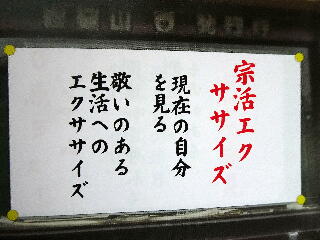 宗活エク
ササイズ
現在の自分
を見る
敬いのある
生活への
エクササイズ